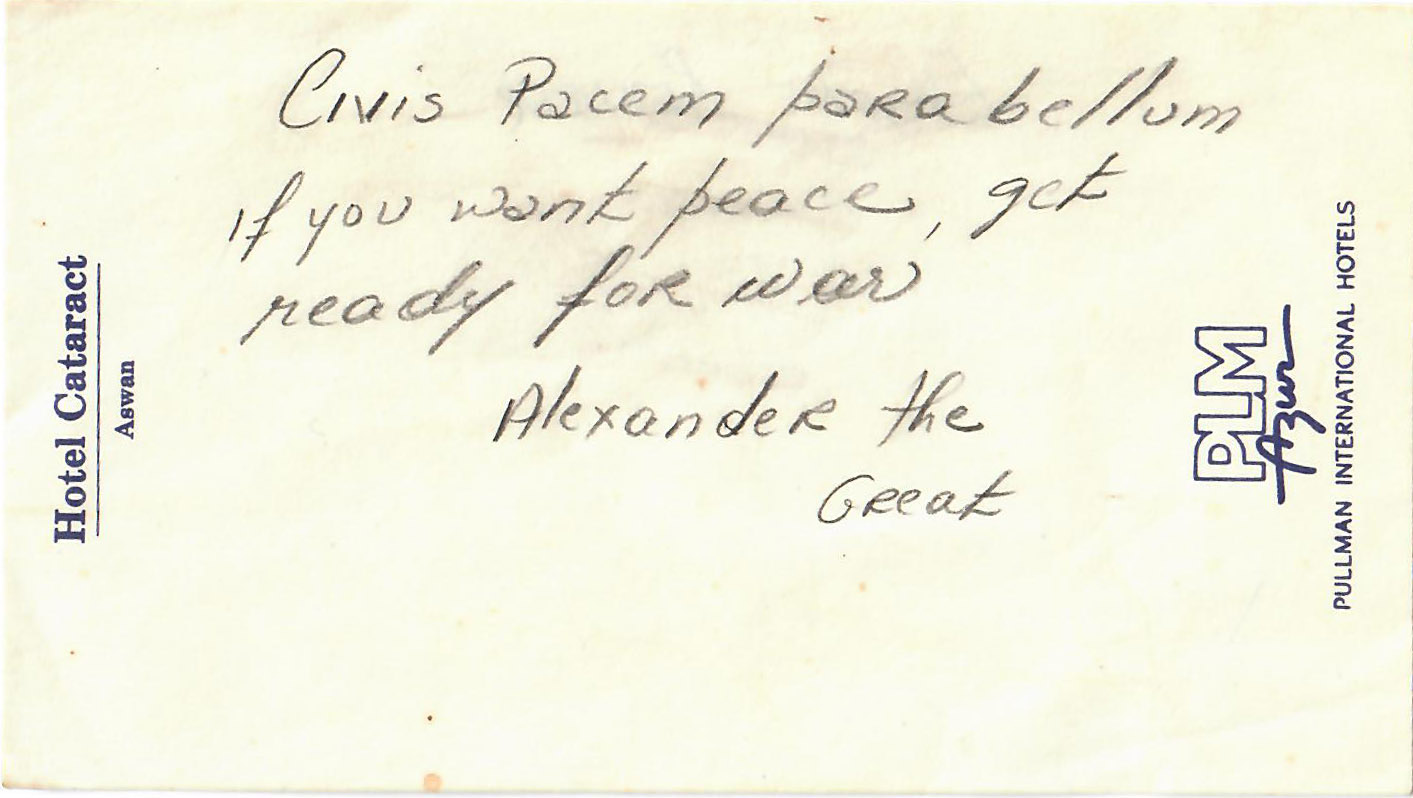 Civis Pacem para bellum
if you want peace, get
ready for war
Alexander the
Great
Hotel Cataract
Aswan
PLM
Azur
PULLMAN INTERNATIONAL HOTELS